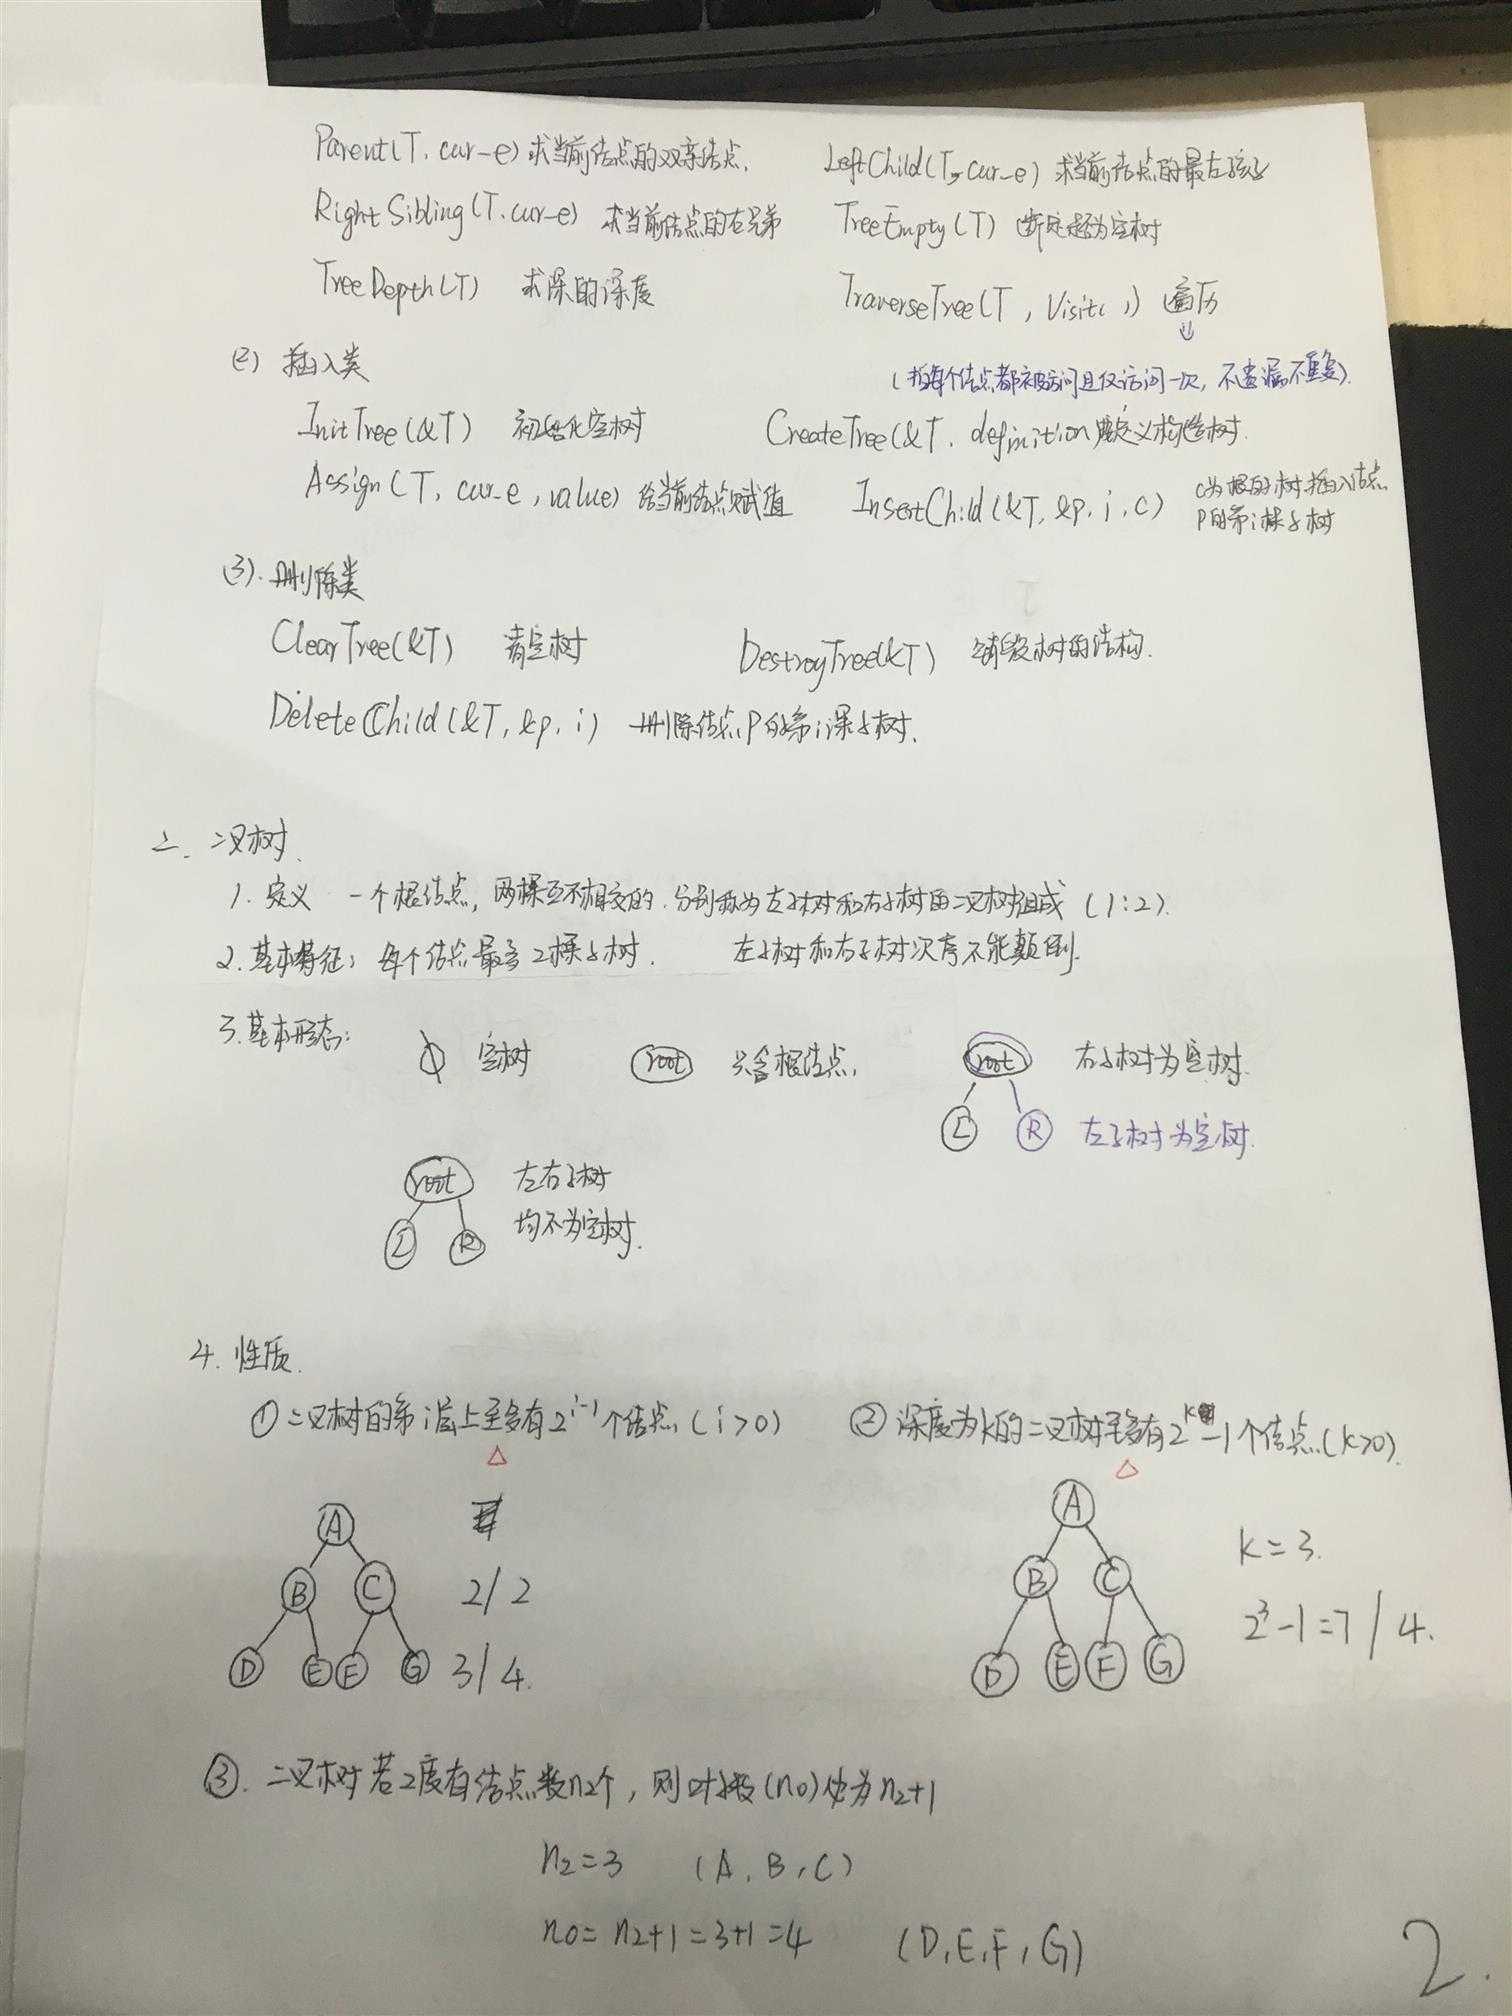 Parent(T, cur-e) 求当前结点的双亲结点. LeftChild(T, cur-e) 求当前结点的最左孩子
RightSibling(T, cur-e) 求当前结点的右兄弟 TreeEmpty(T) 断定是否为空树
TreeDepth(T) 求深的深度 TraverseTree(T, Visit( )) 遍历
(2) 插入类 (指每个结点都被访问且仅访问一次, 不遗漏不重复).
InitTree(&T) 初始化空树 CreateTree(&T, definition 定义构造树.
Assign(T, cur-e, value) 给当前结点赋值 InsertChild(&T, &p, i, c) c为根的树插入结点
P的第i棵子树
(3). 删除类
ClearTree(&T) 清空树 DestroyTree(&T) 销毁树的结构.
DeleteChild(&T, &p, i) 删除结点P的第i课子树.
二. 二叉树.
1. 定义 一个根结点, 两棵互不相交的. 分别称为左子树和右子树的二叉树组成 (1:2).
2. 基本特征: 每个结点最多2棵子树. 左子树和右子树次序不能颠倒.
3. 基本形态: φ 空树 root 只含根结点. root 右子树为空树.
L R 左子树为空树.
root 左右子树
L R 均不为空树.
4. 性质.
① 二叉树的第i层上至多有2^{i-1}个结点 (i>0) ② 深度为k的二叉树至多有2^k-1个结点 (k>0).
△ △
A A
B C 2/2 B C k=3.
D E F G 3/4. D E F G 2^3-1=7/4.
③. 二叉树若2度有结点数n2个, 则叶子数(n0)必为n2+1
n2=3 (A, B, C)
n0= n2+1=3+1=4 (D, E, F, G)
2.